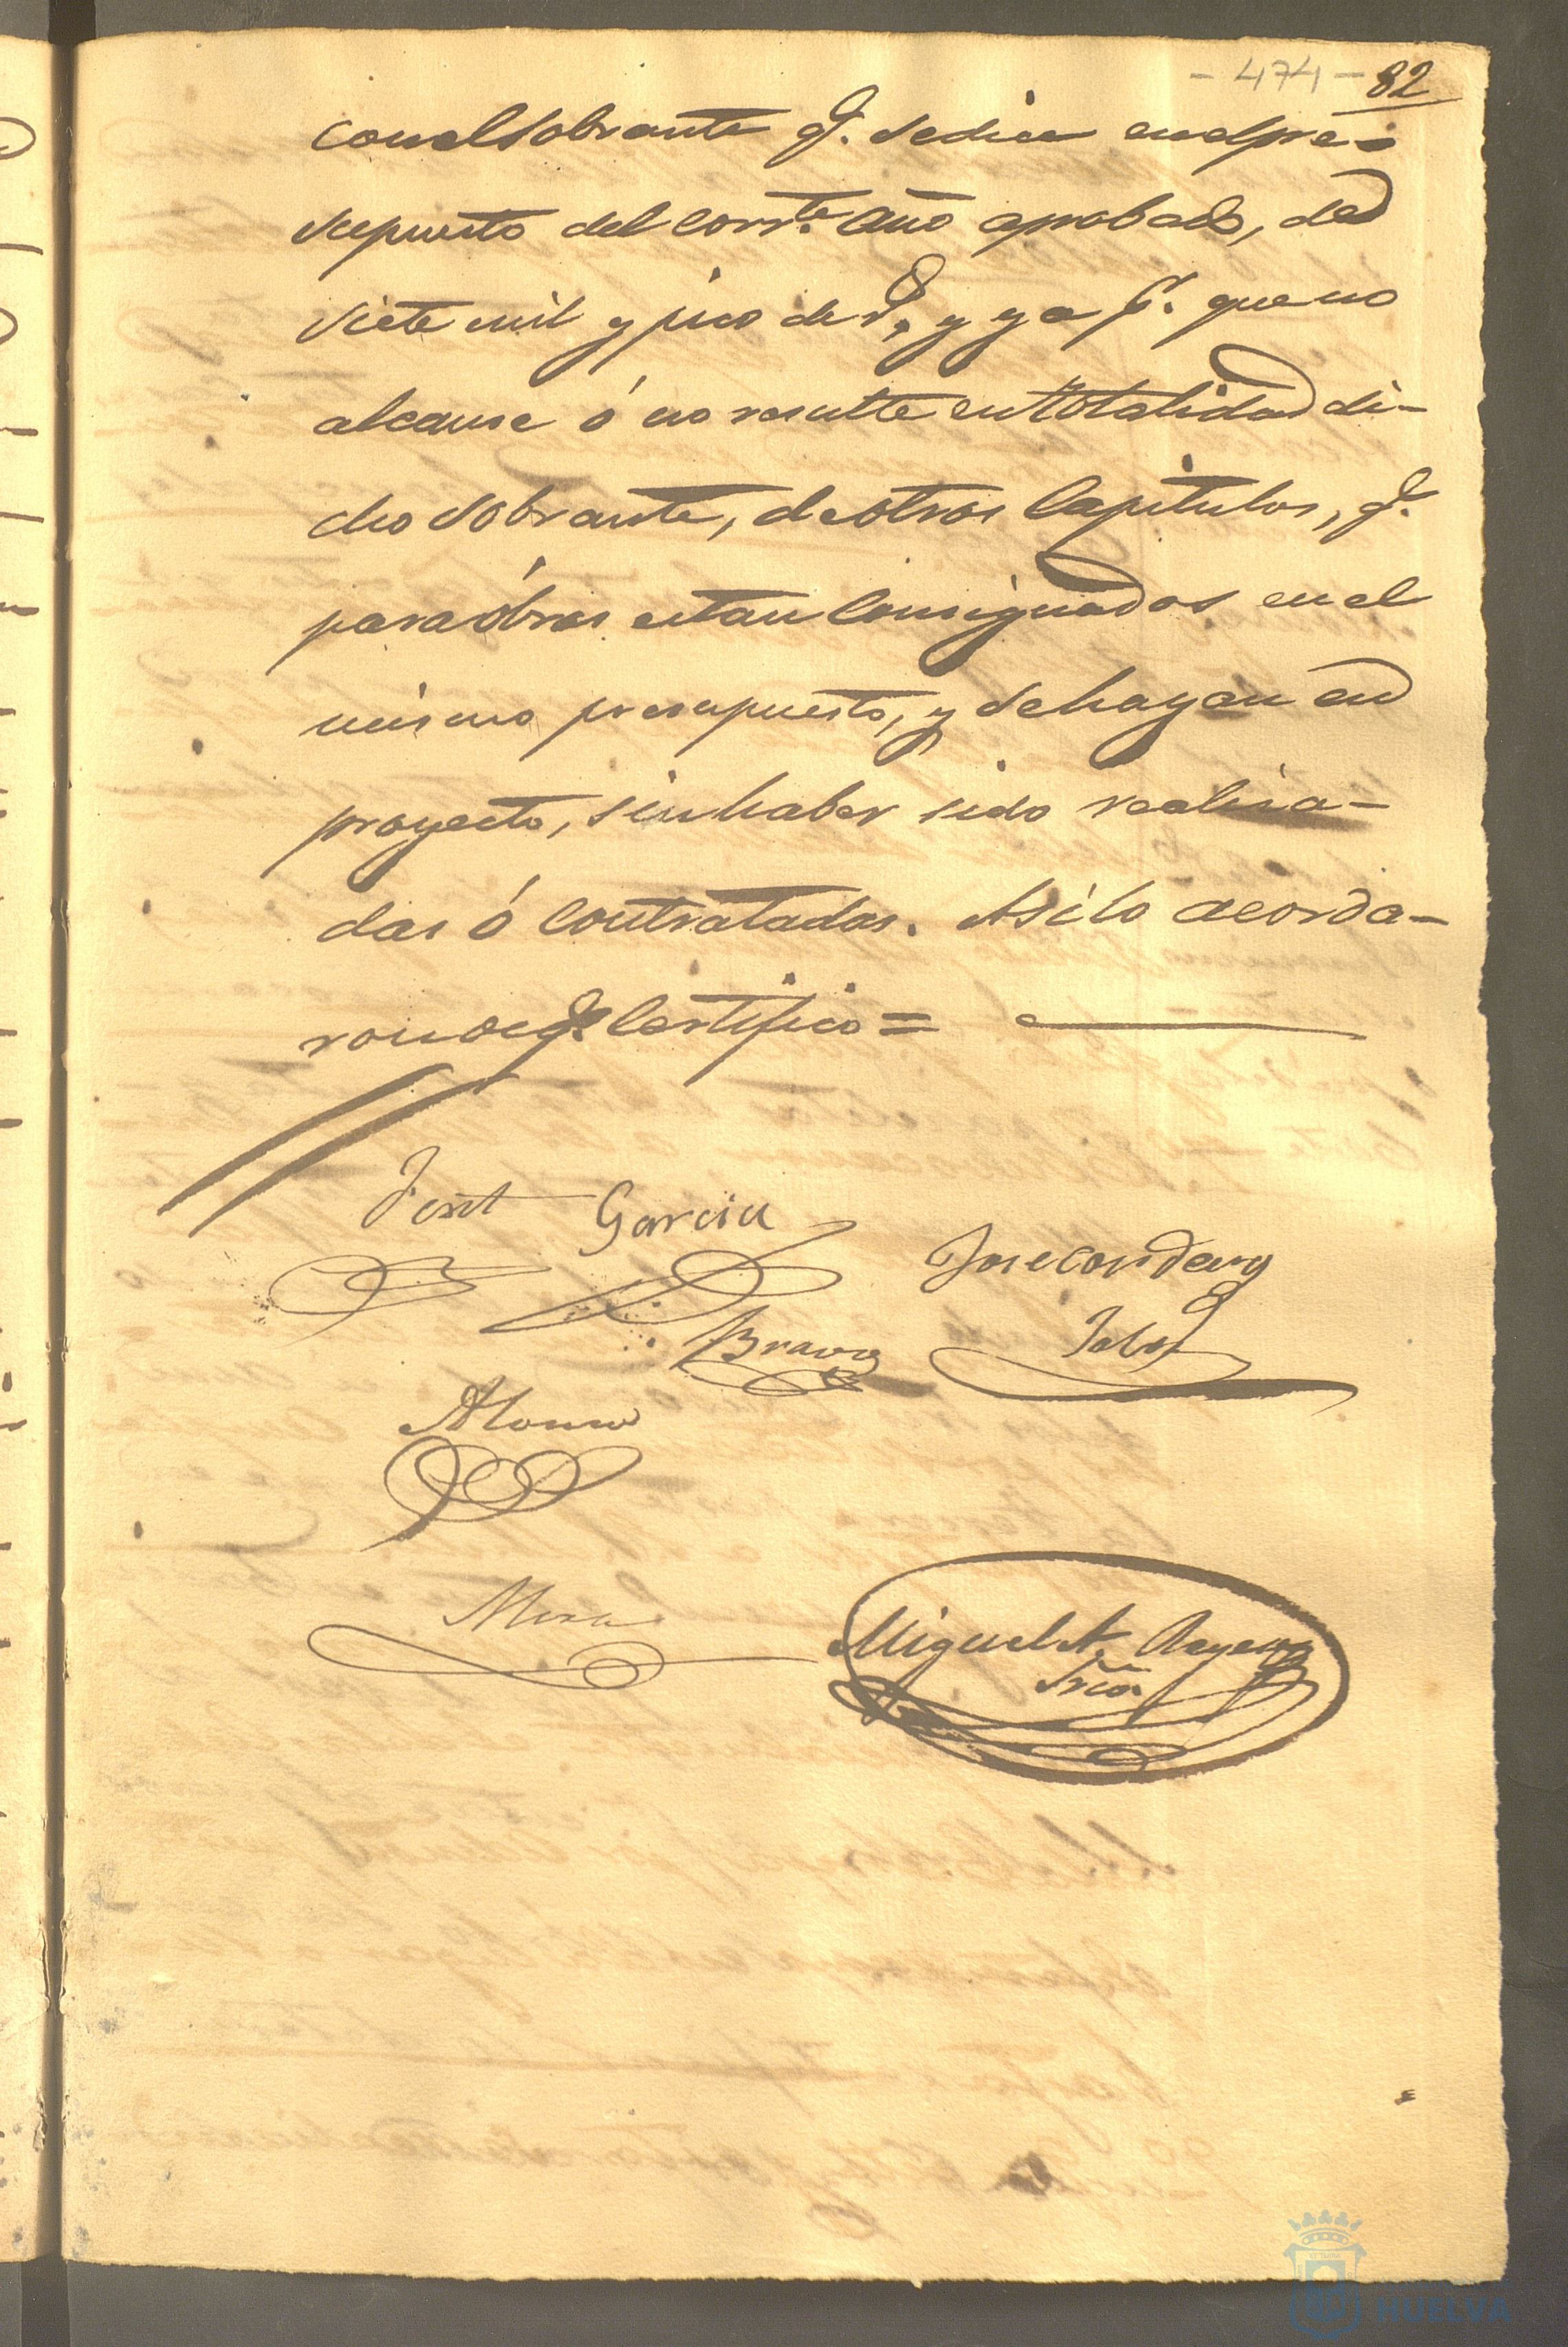 - 474 - 82
con el sobrante q.e se dice en el pre-
supuesto del corr.te año aprobado, de
siete mil y pico de r.s, y ya p.r que no
alcanse ó no resulte en totalidad di-
cho sobrante, de otros Capitulos, q.e
para óbras estan Consignados en el
mismo presupuesto, y se hayan en
proyecto, sin haber sido realisa-
das ó Contratadas. Asi lo acorda-
ron de q.e Certifico =
Font Garcia
Jose
Bravo
Alonso
Mora
Miguel A.
Srio.
HUELVA